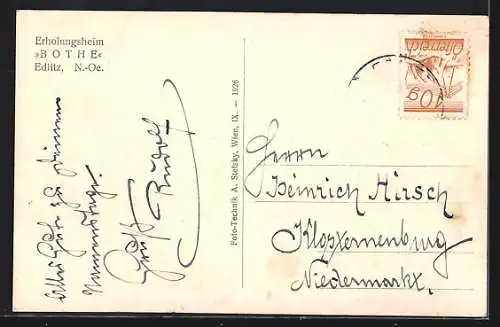 Erholungsheim
»BOTHE«
Edlitz, N.-Oe.
Alles Gute zu Deinem
Namenstage.
Gruß
Rudolf
Foto-Technik A. Stefsky, Wien, IX. — 1926
Österreich
10g
Herrn
Heinrich Hirsch
Klosterneuburg
Niedermarkt.